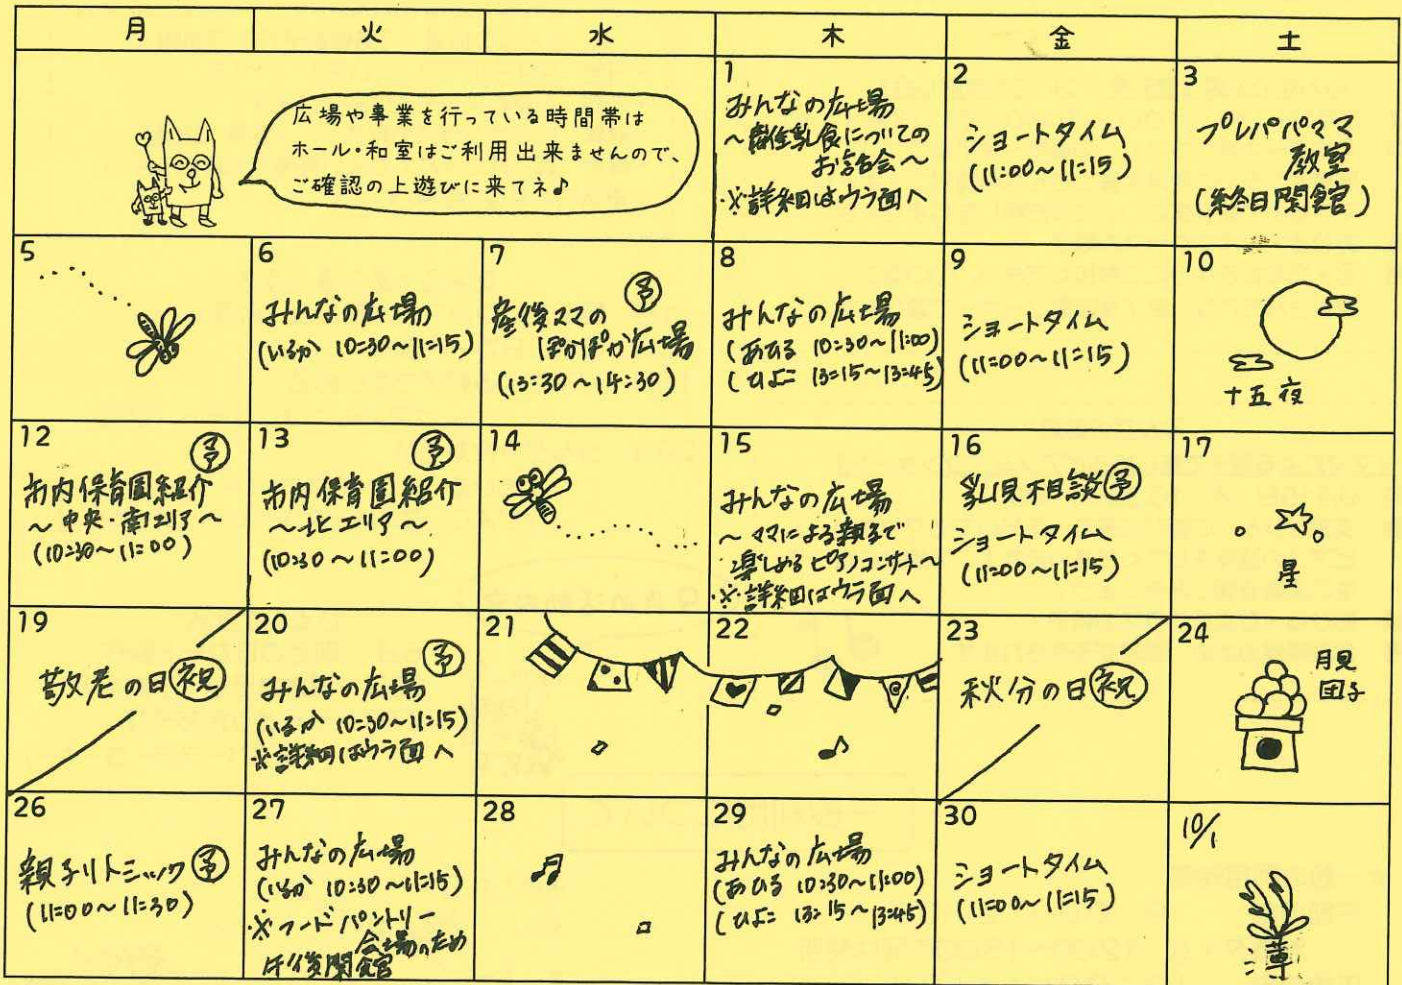 月 火 水 木 金 土
広場や事業を行っている時間帯は
ホール・和室はご利用出来ませんので、
ご確認の上遊びに来てネ♪
1
みんなの広場
～離乳食についての
お話会～
※詳細はウラ面へ
2
ショートタイム
(11:00～11:15)
3
プレパパママ
教室
(終日閉館)
5
6
みんなの広場
(いるか 10:30～11:15)
7
予
産後ママの
ぽかぽか広場
(13:30～14:30)
8
みんなの広場
(あひる 10:30～11:00)
(ひよこ 13:15～13:45)
9
ショートタイム
(11:00～11:15)
10
十五夜
12
予
市内保育園紹介
～中央・南エリア～
(10:30～11:00)
13
予
市内保育園紹介
～北エリア～
(10:30～11:00)
14
15
みんなの広場
～ママによる親子で
楽しめるピアノコンサート～
※詳細はウラ面へ
16
乳児相談 予
ショートタイム
(11:00～11:15)
17
星
19
敬老の日 祝
20
予
みんなの広場
(いるか 10:30～11:15)
※詳細はウラ面へ
21
22
23
秋分の日 祝
24
月見
団子
26
親子リトミック 予
(11:00～11:30)
27
みんなの広場
(いるか 10:30～11:15)
※フードパントリー
会場のため
午後閉館
28
29
みんなの広場
(あひる 10:30～11:00)
(ひよこ 13:15～13:45)
30
ショートタイム
(11:00～11:15)
10/1